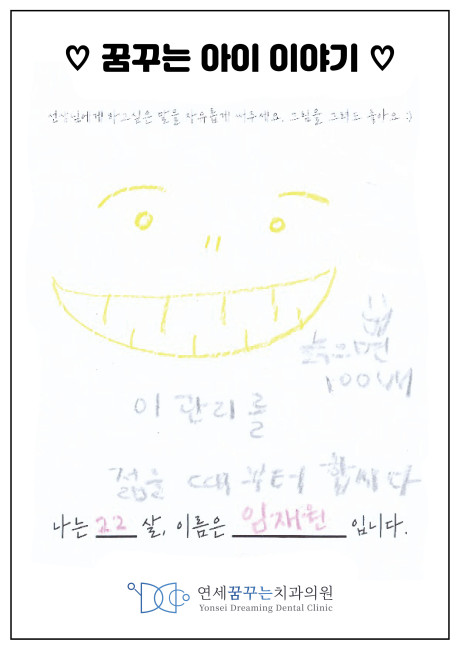 ♡ 꿈꾸는 아이 이야기 ♡
선생님에게 하고싶은 말을 자유롭게 써주세요. 그림을 그려도 좋아요 :)
100배
이 관리를
젊을 때 부터 합시다
나는 22 살, 이름은 임재원 입니다.
연세꿈꾸는치과의원
Yonsei Dreaming Dental Clinic